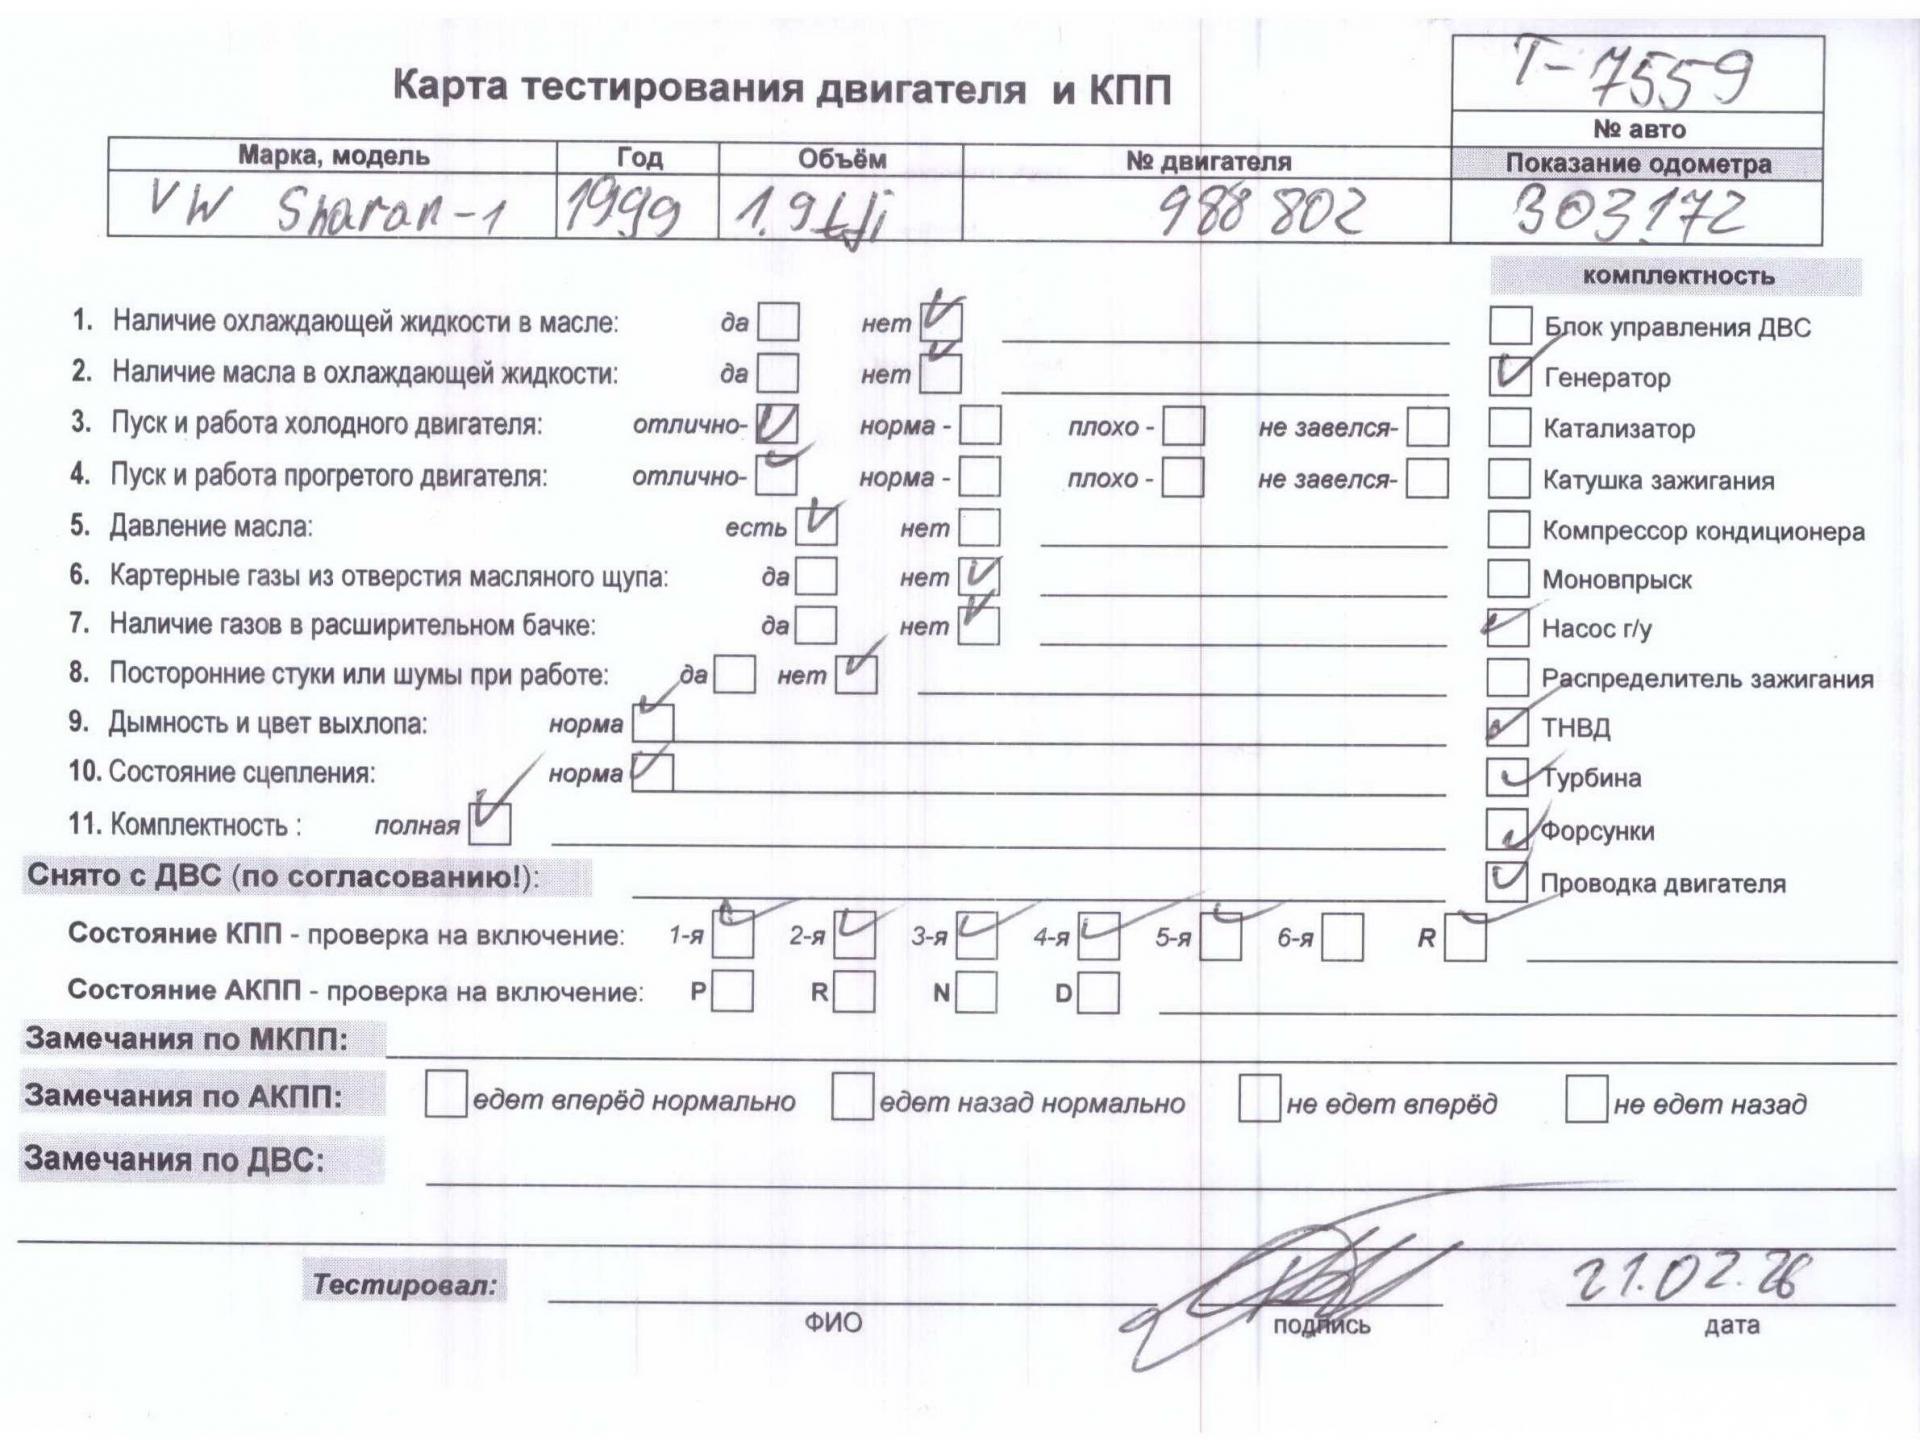 Т-7559
Карта тестирования двигателя и КПП
№ авто
Марка, модель Год Объём № двигателя Показание одометра
VW Sharan-1 1999 1.9 tdi 988 802 303172
комплектность
1. Наличие охлаждающей жидкости в масле: да нет Блок управления ДВС
2. Наличие масла в охлаждающей жидкости: да нет Генератор
3. Пуск и работа холодного двигателя: отлично- норма - плохо - не завелся- Катализатор
4. Пуск и работа прогретого двигателя: отлично- норма - плохо - не завелся- Катушка зажигания
5. Давление масла: есть нет Компрессор кондиционера
6. Картерные газы из отверстия масляного щупа: да нет Моновпрыск
7. Наличие газов в расширительном бачке: да нет Насос г/у
8. Посторонние стуки или шумы при работе: да нет Распределитель зажигания
9. Дымность и цвет выхлопа: норма ТНВД
10. Состояние сцепления: норма Турбина
11. Комплектность : полная Форсунки
Снято с ДВС (по согласованию!): Проводка двигателя
Состояние КПП - проверка на включение: 1-я 2-я 3-я 4-я 5-я 6-я R
Состояние АКПП - проверка на включение: P R N D
Замечания по МКПП:
Замечания по АКПП: едет вперёд нормально едет назад нормально не едет вперёд не едет назад
Замечания по ДВС:
Тестировал: 21.02.26
ФИО подпись дата